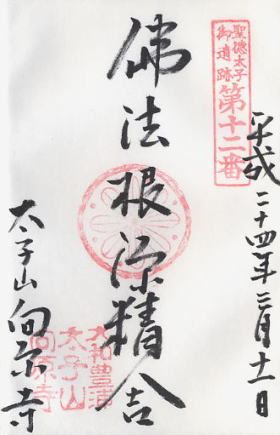 聖徳太子
御遺跡
第十二番
平成二十四年三月十一日
佛法根源精舎
太子山向原寺
大和豊浦
太子山
向原寺